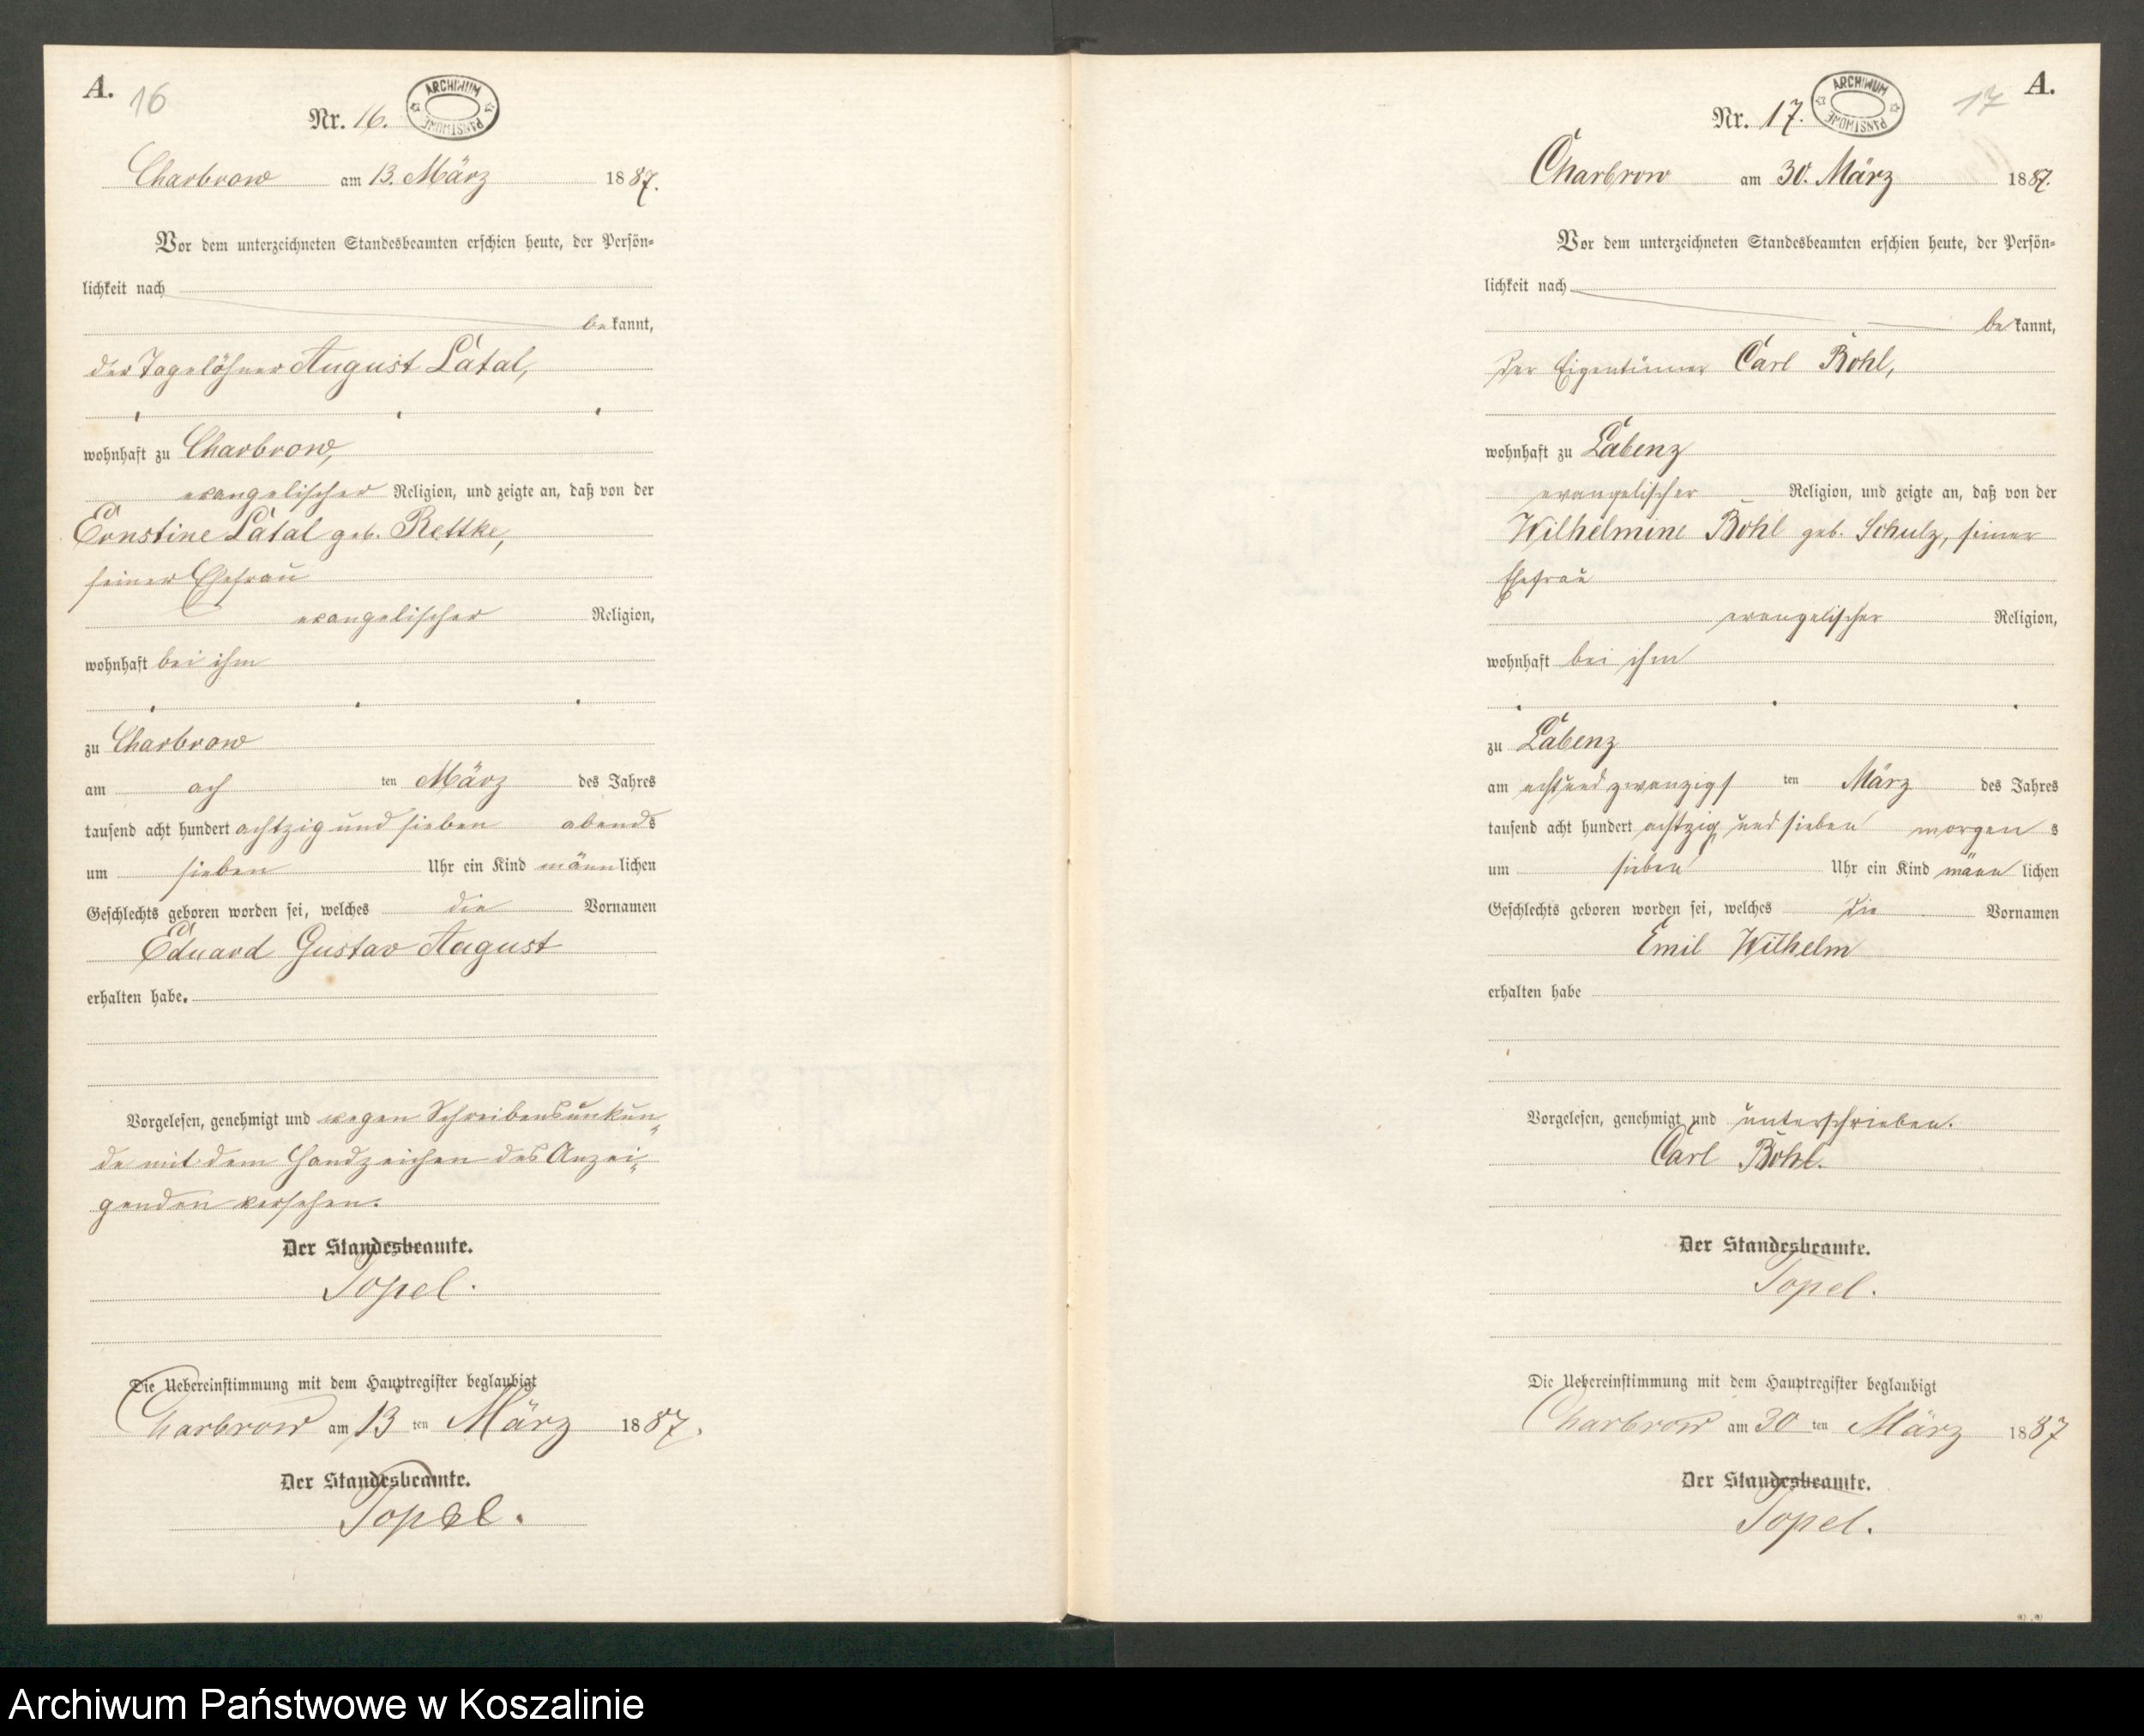 A. 16
Nr. 16.
ARCHIWUM PAŃSTWOWE
Charbrow am 13. März 1887.
Vor dem unterzeichneten Standesbeamten erschien heute, der Persön=
lichkeit nach
bekannt,
der Tagelöhner August Latal,
wohnhaft zu Charbrow,
evangelischer Religion, und zeigte an, daß von der
Ernstine Latal geb. Rettke,
seiner Ehefrau
evangelischer Religion,
wohnhaft bei ihm
zu Charbrow
am ach ten März des Jahres
tausend acht hundert achtzig und sieben abends
um sieben Uhr ein Kind männlichen
Geschlechts geboren worden sei, welches die Vornamen
Eduard Gustav August
erhalten habe.
Vorgelesen, genehmigt und wegen Schreibensunkun„
de mit dem Handzeichen des Anzei„
genden versehen.
Der Standesbeamte.
Topel.
Die Uebereinstimmung mit dem Hauptregister beglaubigt
Charbrow am 13 ten März 1887.
Der Standesbeamte.
Topel.
17 A.
Nr. 17.
ARCHIWUM PAŃSTWOWE
Charbrow am 30. März 1887.
Vor dem unterzeichneten Standesbeamten erschien heute, der Persön=
lichkeit nach
bekannt,
der Eigentümer Carl Bohl,
wohnhaft zu Labenz
evangelischer Religion, und zeigte an, daß von der
Wilhelmine Bohl geb. Schulz, seiner
Ehefrau
evangelischer Religion,
wohnhaft bei ihm
zu Labenz
am achtundzwanzigs ten März des Jahres
tausend acht hundert achtzig und sieben morgens
um sieben Uhr ein Kind männlichen
Geschlechts geboren worden sei, welches die Vornamen
Emil Wilhelm
erhalten habe
Vorgelesen, genehmigt und unterschrieben.
Carl Bohl.
Der Standesbeamte.
Topel.
Die Uebereinstimmung mit dem Hauptregister beglaubigt
Charbrow am 30 ten März 1887
Der Standesbeamte.
Topel.
Archiwum Państwowe w Koszalinie